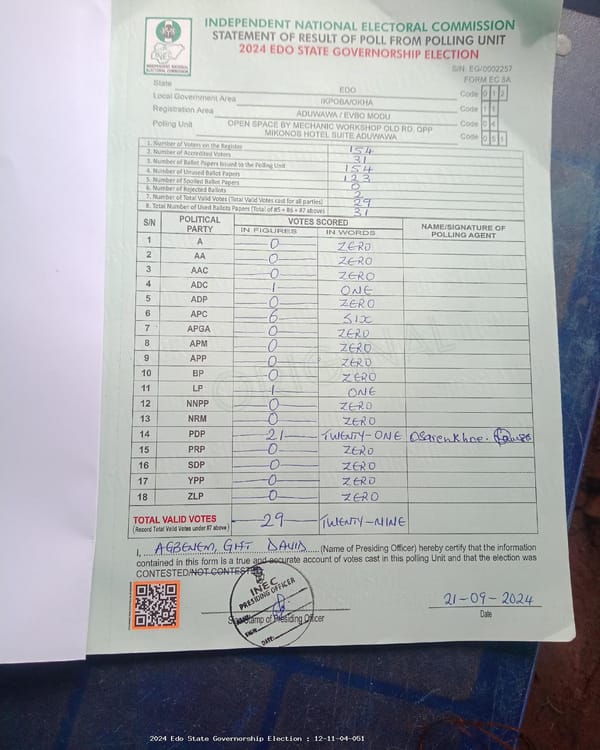 INDEPENDENT NATIONAL ELECTORAL COMMISSION
STATEMENT OF RESULT OF POLL FROM POLLING UNIT
2024 EDO STATE GOVERNORSHIP ELECTION
INEC
INDEPENDENT NATIONAL
ELECTORAL COMMISSION
S/N: EG/0002257
FORM EC 8A
State EDO Code 0 1 2
Local Government Area IKPOBA/OKHA Code 1 1
Registration Area ADUWAWA / EVBO MODU Code 0 4
Polling Unit OPEN SPACE BY MECHANIC WORKSHOP OLD RD, OPP MIKONOS HOTEL SUITE ADUWAWA Code 0 5 1
1. Number of Voters on the Register 154
2. Number of Accredited Voters 31
3. Number of Ballot Papers Issued to the Polling Unit 154
4. Number of Unused Ballot Papers 123
5. Number of Spoiled Ballot Papers 0
6. Number of Rejected Ballots 2
7. Number of Total Valid Votes (Total Valid Votes cast for all parties) 29
8. Total Number of Used Ballots Papers (Total of #5 + #6 + #7 above) 31
S/N POLITICAL PARTY VOTES SCORED NAME/SIGNATURE OF POLLING AGENT
IN FIGURES IN WORDS
1 A 0 ZERO
2 AA 0 ZERO
3 AAC 0 ZERO
4 ADC 1 ONE
5 ADP 0 ZERO
6 APC 6 SIX
7 APGA 0 ZERO
8 APM 0 ZERO
9 APP 0 ZERO
10 BP 0 ZERO
11 LP 1 ONE
12 NNPP 0 ZERO
13 NRM 0 ZERO
14 PDP 21 TWENTY-ONE Osarenkhoe.
15 PRP 0 ZERO
16 SDP 0 ZERO
17 YPP 0 ZERO
18 ZLP 0 ZERO
ORIGINAL
TOTAL VALID VOTES 29 TWENTY-NINE
(Record Total Valid Votes under #7 above)
I, AGBENEM, GIFT DAVID (Name of Presiding Officer) hereby certify that the information
contained in this form is a true and accurate account of votes cast in this polling Unit and that the election was
CONTESTED/NOT CONTESTED
INEC
PRESIDING OFFICER
SIGN:
DATE:
Stamp of Presiding Officer
21-09-2024
Date
2024 Edo State Governorship Election : 12-11-04-051